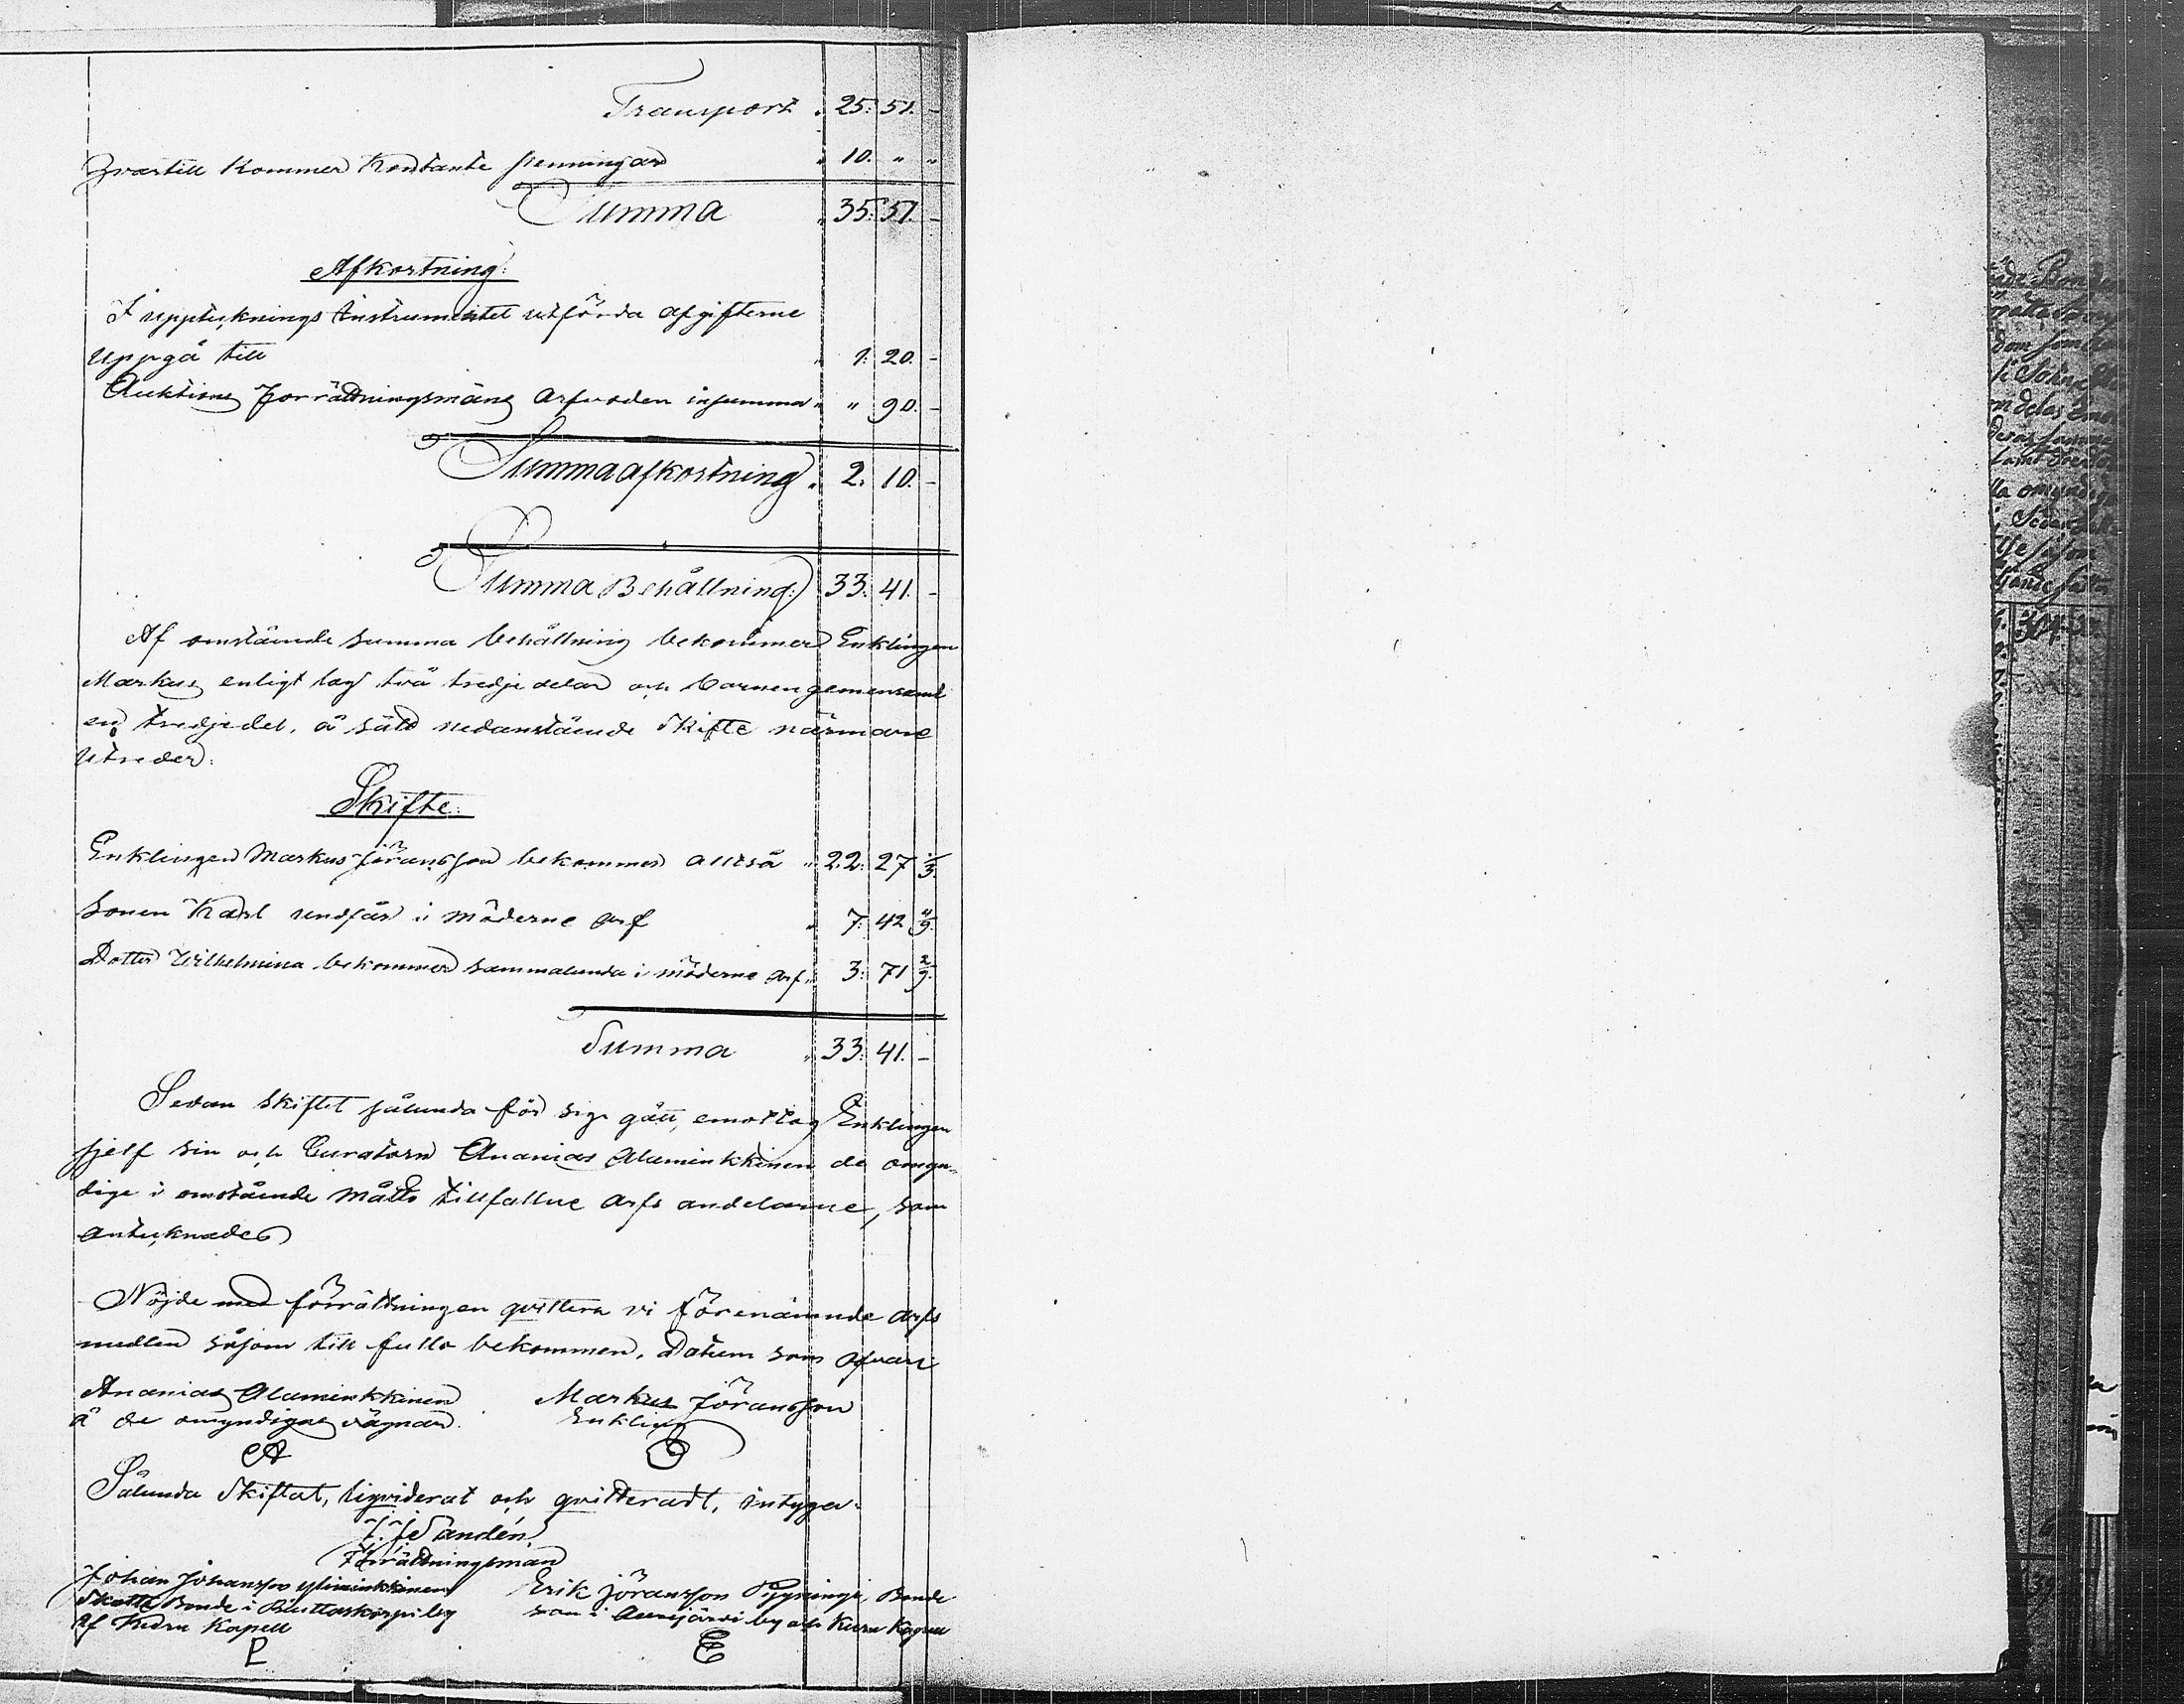 Transport " 25: 51. -
Hvartill kommer Kontante penningar " 10. " "
Summa " 35: 51. -
Afkortning:
I uppteknings Instrumentet utförda afgifterne
uppgå till " 1: 20. -
Auktions förrättningsmäns arfvoden insumma " " 90. -
Summa afkortning " 2: 10. -
Summa Behållning: 33: 41. -
Af omstående summa behållning bekommer Enklingen
Markus enligt lag två tredje delar och barnen gemensamt
en tredjedel, å sätt nedanstående skifte närmare
utreder:
Skifte:
Enklingen Markus Jöransson bekommer alltså " 22: 27 1/3.
Sonen Karl undfår i möderne arf " 7: 42 4/9.
Dotter Wilhelmina bekommer sammalunda i möderne arf " 3: 71 2/9.
Summa " 33: 41. -
Sedan skiftet sålunda för sig gått, emottog Enklingen
sjelf sin och Curatorn Ananias Alaminkkinen de omyn-
dige i omstående måtto tillfallne arfs andelarne, som
anteknades
Nöjde med förrättningen qvittera vi förenämnde arfs
medlen såsom till fullo bekommen, Datum som ofvan
Ananias Alaminkkinen Markus Jöransson
å de omyndigas vägnar. Enkling
A
Sålunda Skiftat, liqviderat och qvitteradt, intygar:
Sandén,
Förrättningsman
Johan Johansson Yliminkkinen Erik Jöransson Bonde
Skatte Bonde i by son i Aurejärvi by och Kuru Kapell
af Kuru Kapell
P E